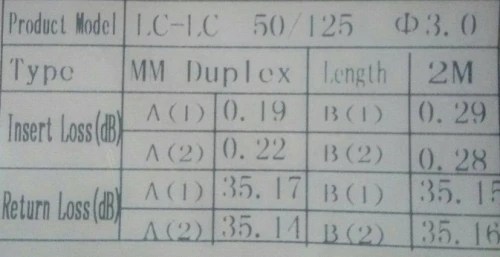 Product Model LC-LC 50/125 Φ3.0
Type MM Duplex Length 2M
Insert Loss(dB) A(1) 0.19 B(1) 0.29
A(2) 0.22 B(2) 0.28
Return Loss(dB) A(1) 35.17 B(1) 35.15
A(2) 35.14 B(2) 35.16